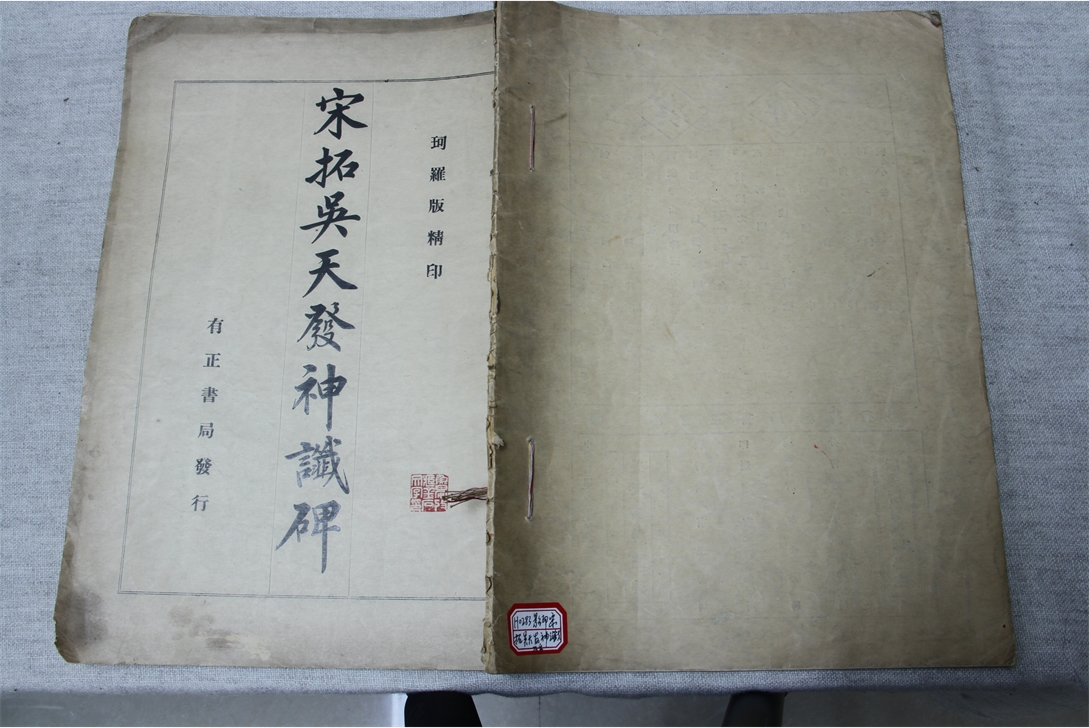 珂羅版精印
宋拓吳天發神讖碑
有正書局發行